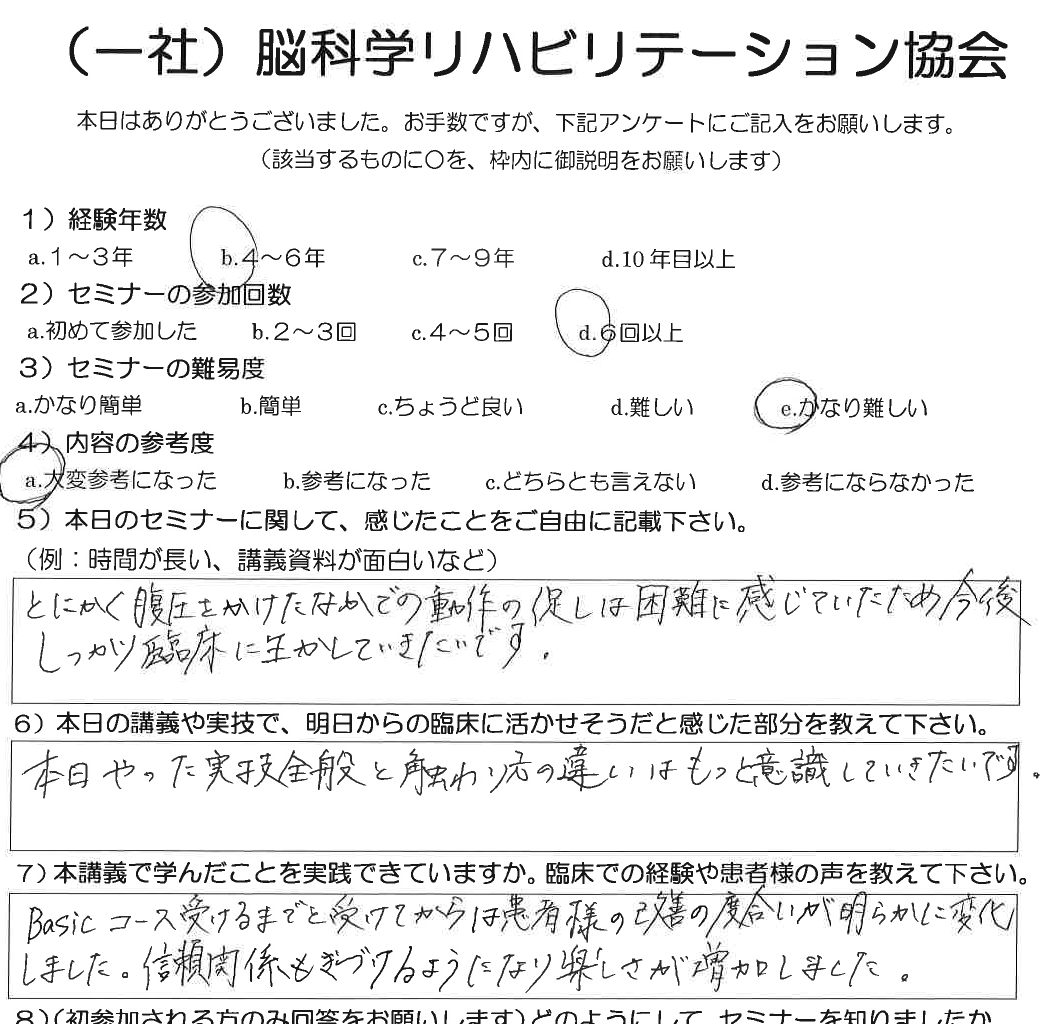 （一社）脳科学リハビリテーション協会
本日はありがとうございました。お手数ですが、下記アンケートにご記入をお願いします。
（該当するものに〇を、枠内に御説明をお願いします）
１）経験年数
a.１～３年 b.４～６年 c.７～９年 d.10 年目以上
２）セミナーの参加回数
a.初めて参加した b.２～３回 c.４～５回 d.６回以上
３）セミナーの難易度
a.かなり簡単 b.簡単 c.ちょうど良い d.難しい e.かなり難しい
４）内容の参考度
a.大変参考になった b.参考になった c.どちらとも言えない d.参考にならなかった
５）本日のセミナーに関して、感じたことをご自由に記載下さい。
（例：時間が長い、講義資料が面白いなど）
とにかく腹圧をかけたなかでの動作の促しは困難に感じていたため今後
しっかり臨床に生かしていきたいです．
６）本日の講義や実技で、明日からの臨床に活かせそうだと感じた部分を教えて下さい。
本日やった実技全般と触わり方の違いはもっと意識していきたいです．
７）本講義で学んだことを実践できていますか。臨床での経験や患者様の声を教えて下さい。
Basicコース受けるまでと受けてからは患者様の改善の度合いが明らかに変化
しました。信頼関係もきづけるようになり楽しさが増加しました。
８）（初参加される方のみ回答をお願いします）どのようにして、セミナーを知りましたか